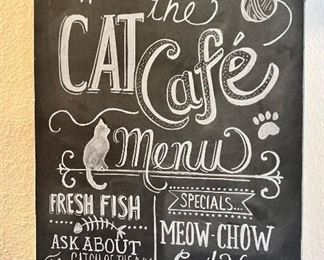 the
CAT Café
Menu
FRESH FISH
ASK ABOUT
CATCH OF THE DAY
SPECIALS...
MEOW-CHOW